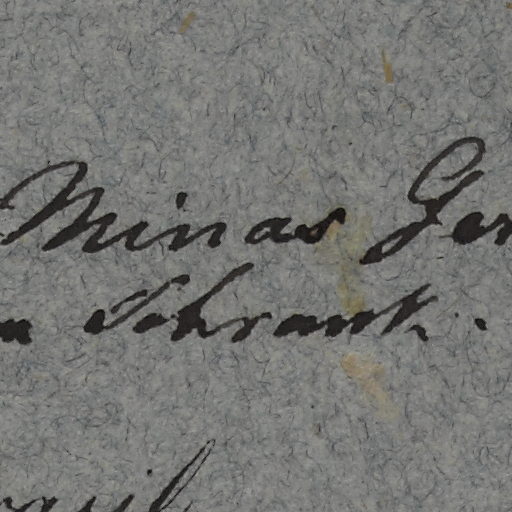 Minas Ger
a Schrank.